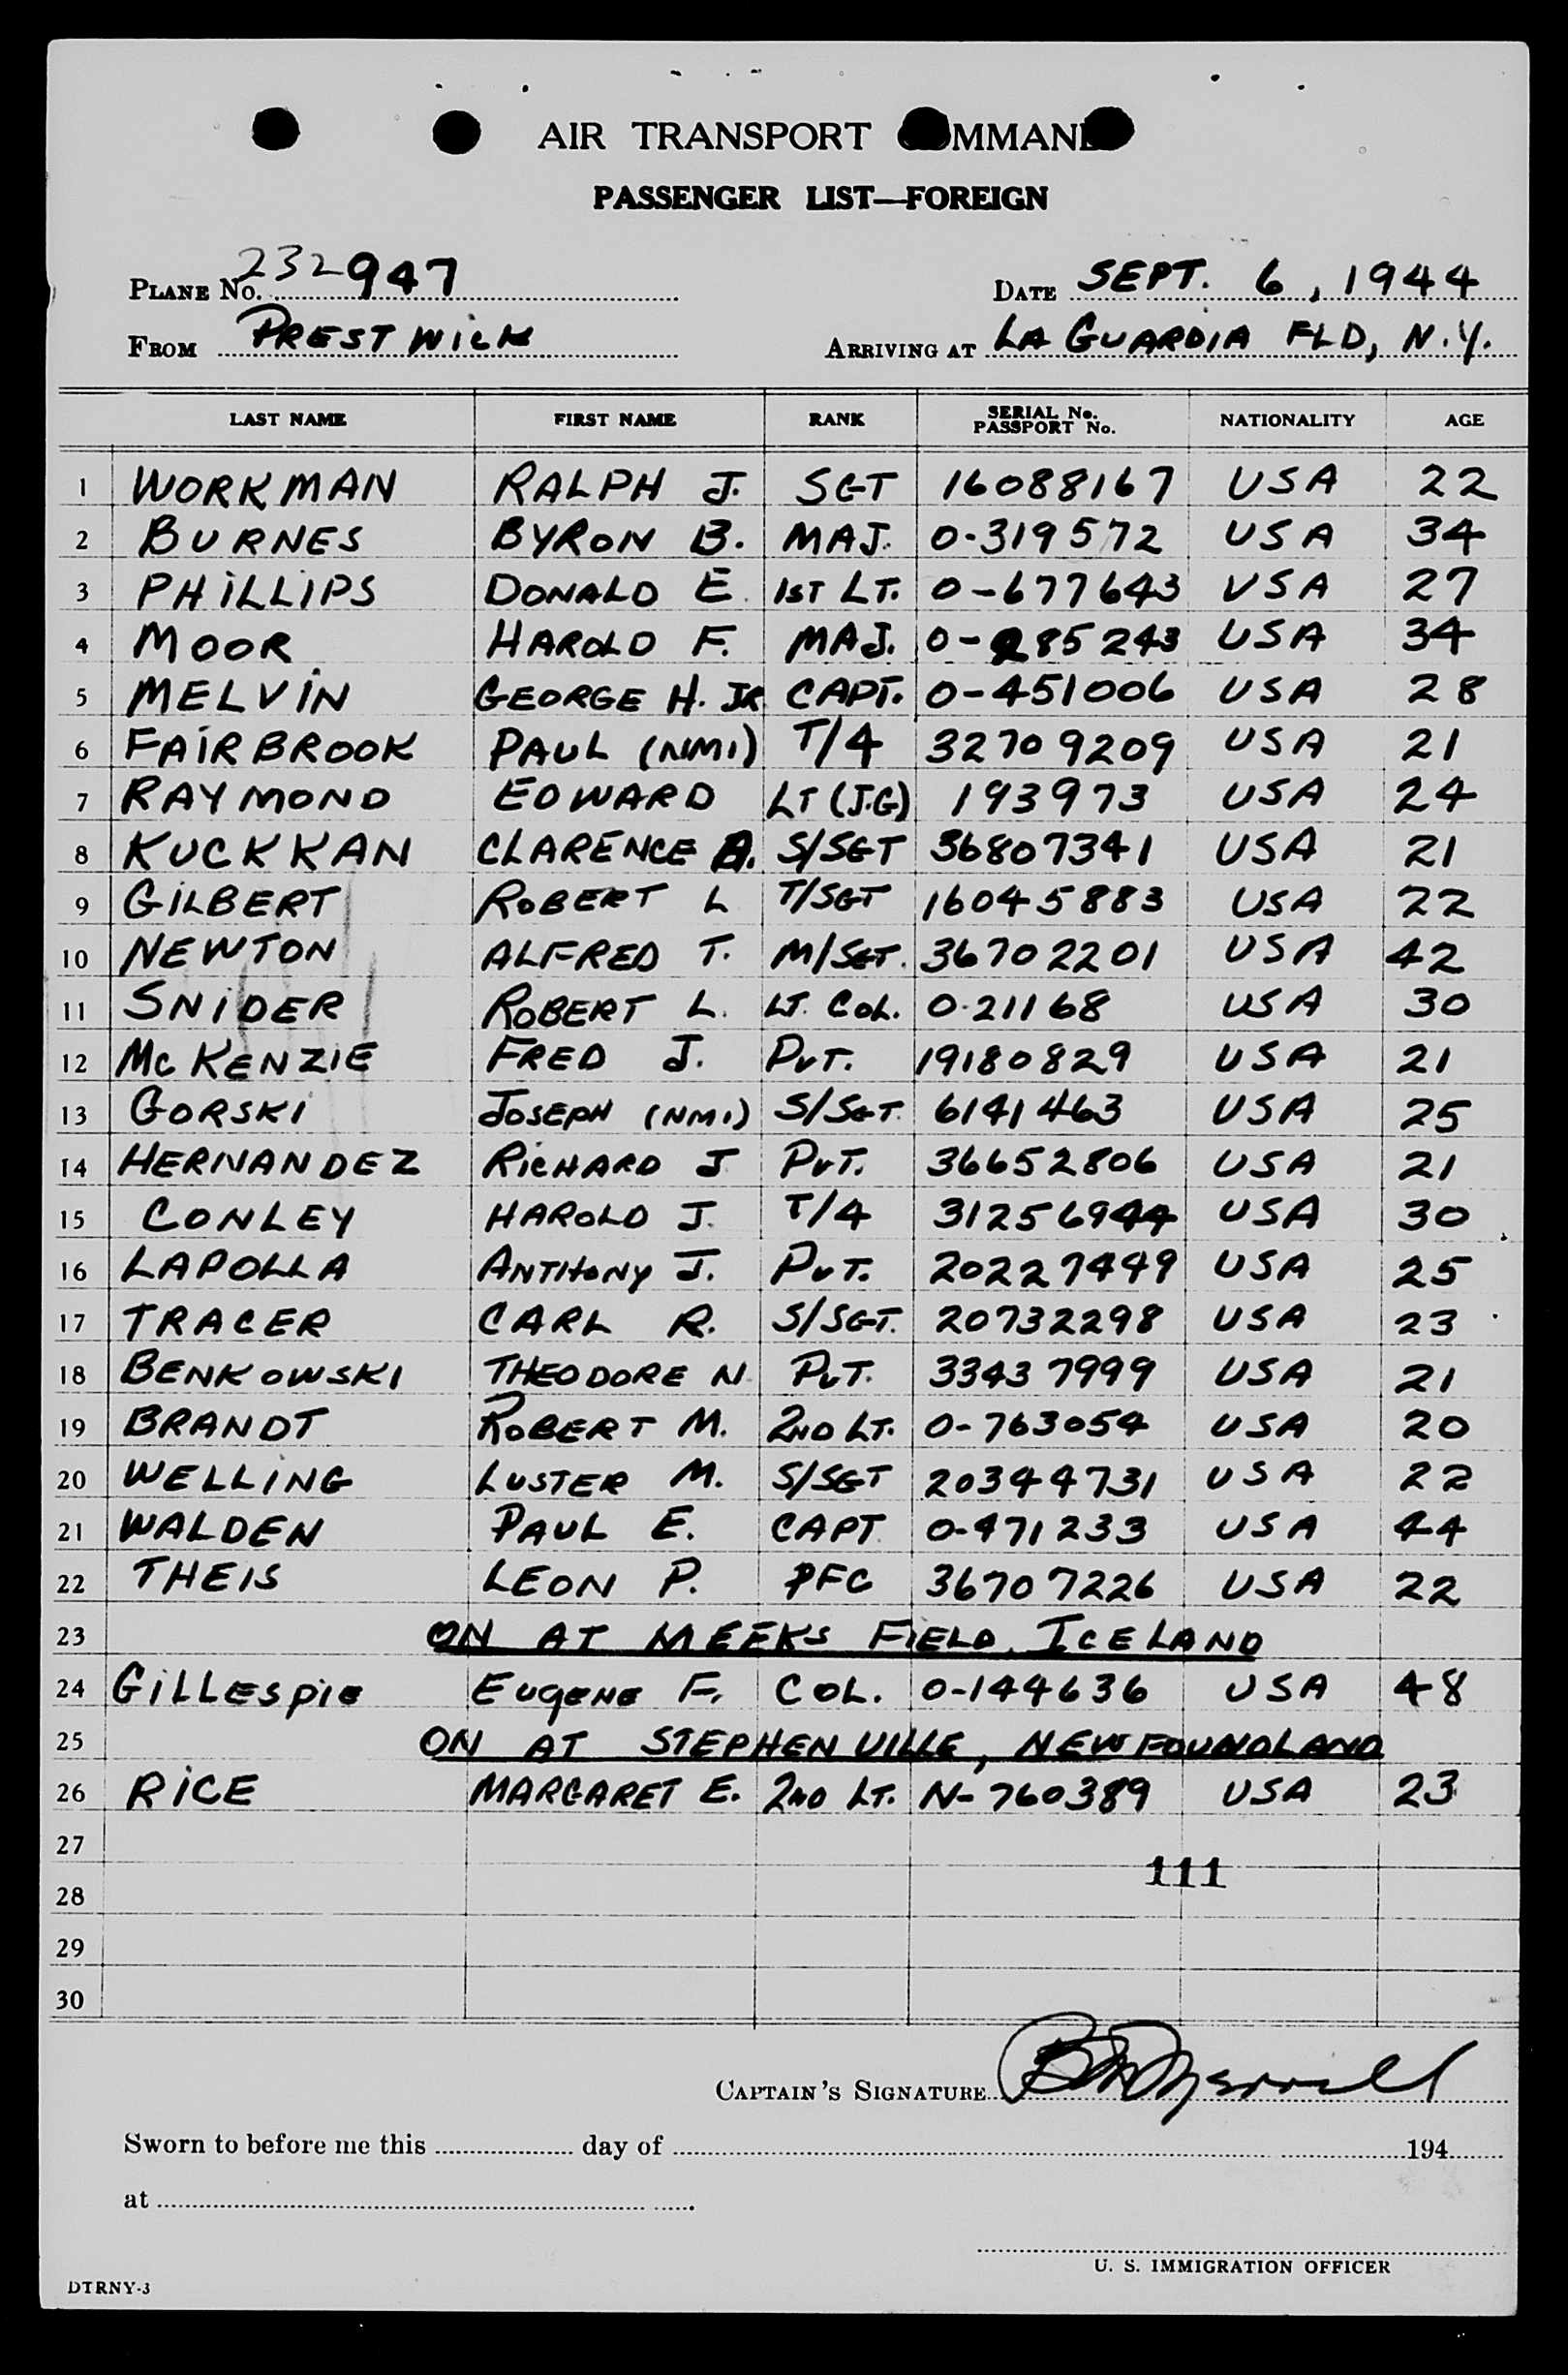 AIR TRANSPORT COMMAND
PASSENGER LIST—FOREIGN
PLANE No. 232947 DATE SEPT. 6, 1944
FROM PRESTWICK ARRIVING AT LA GUARDIA FLD, N.Y.
LAST NAME FIRST NAME RANK SERIAL No. PASSPORT No. NATIONALITY AGE
1 WORKMAN RALPH J. SGT 16088167 USA 22
2 BURNES BYRON B. MAJ. 0-319572 USA 34
3 PHILLIPS DONALD E. 1ST LT. 0-677643 USA 27
4 MOOR HAROLD F. MAJ. 0-285243 USA 34
5 MELVIN GEORGE H. JR CAPT. 0-451006 USA 28
6 FAIRBROOK PAUL (NMI) T/4 32709209 USA 21
7 RAYMOND EDWARD LT (J.G) 193973 USA 24
8 KUCKKAN CLARENCE A. S/SGT 36807341 USA 21
9 GILBERT ROBERT L T/SGT 16045883 USA 22
10 NEWTON ALFRED T. M/SGT. 36702201 USA 42
11 SNIDER ROBERT L. LT. COL. 0-21168 USA 30
12 McKENZIE FRED J. PVT. 19180829 USA 21
13 GORSKI JOSEPH (NMI) S/SGT. 6141463 USA 25
14 HERNANDEZ RICHARD J PVT. 36652806 USA 21
15 CONLEY HAROLD J. T/4 31256944 USA 30
16 LAPOLLA ANTHONY J. PVT. 20227449 USA 25
17 TRACER CARL R. S/SGT. 20732298 USA 23
18 BENKOWSKI THEODORE N. PVT. 33437999 USA 21
19 BRANDT ROBERT M. 2ND LT. 0-763054 USA 20
20 WELLING LUSTER M. S/SGT 20344731 USA 22
21 WALDEN PAUL E. CAPT 0-471233 USA 44
22 THEIS LEON P. PFC 36707226 USA 22
23 ON AT MEEKS FIELD, ICELAND
24 GILLESPIE EUGENE F. COL. 0-144636 USA 48
25 ON AT STEPHENVILLE, NEWFOUNDLAND
26 RICE MARGARET E. 2ND LT. N-760389 USA 23
27
111
28
29
30
CAPTAIN'S SIGNATURE
Sworn to before me this day of 194
at
U. S. IMMIGRATION OFFICER
DTRNY-3